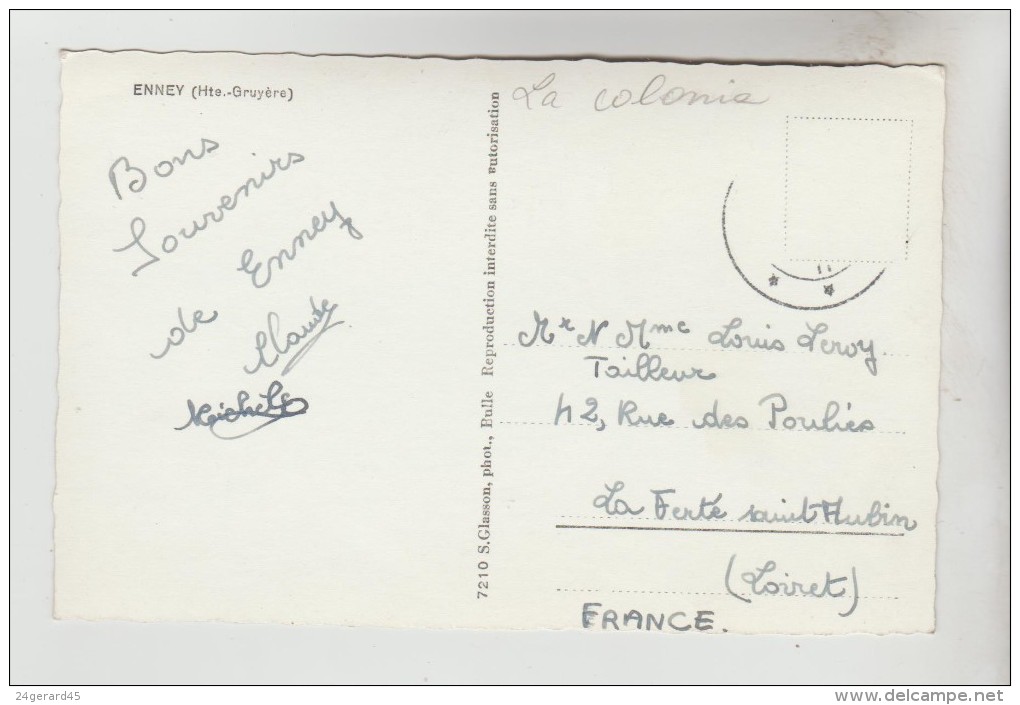 ENNEY (Hte.-Gruyère)
Bons
Souvenirs
de Enney
Claude
Michele
7210 S. Glasson, phot., Bulle Reproduction interdite sans autorisation
La colonia
Mr N Mme Louis Leroy
Tailleur
42, Rue des Poulies
La Ferté saint Aubin
(Loiret)
FRANCE.
24gerard45
www.delcampe.net